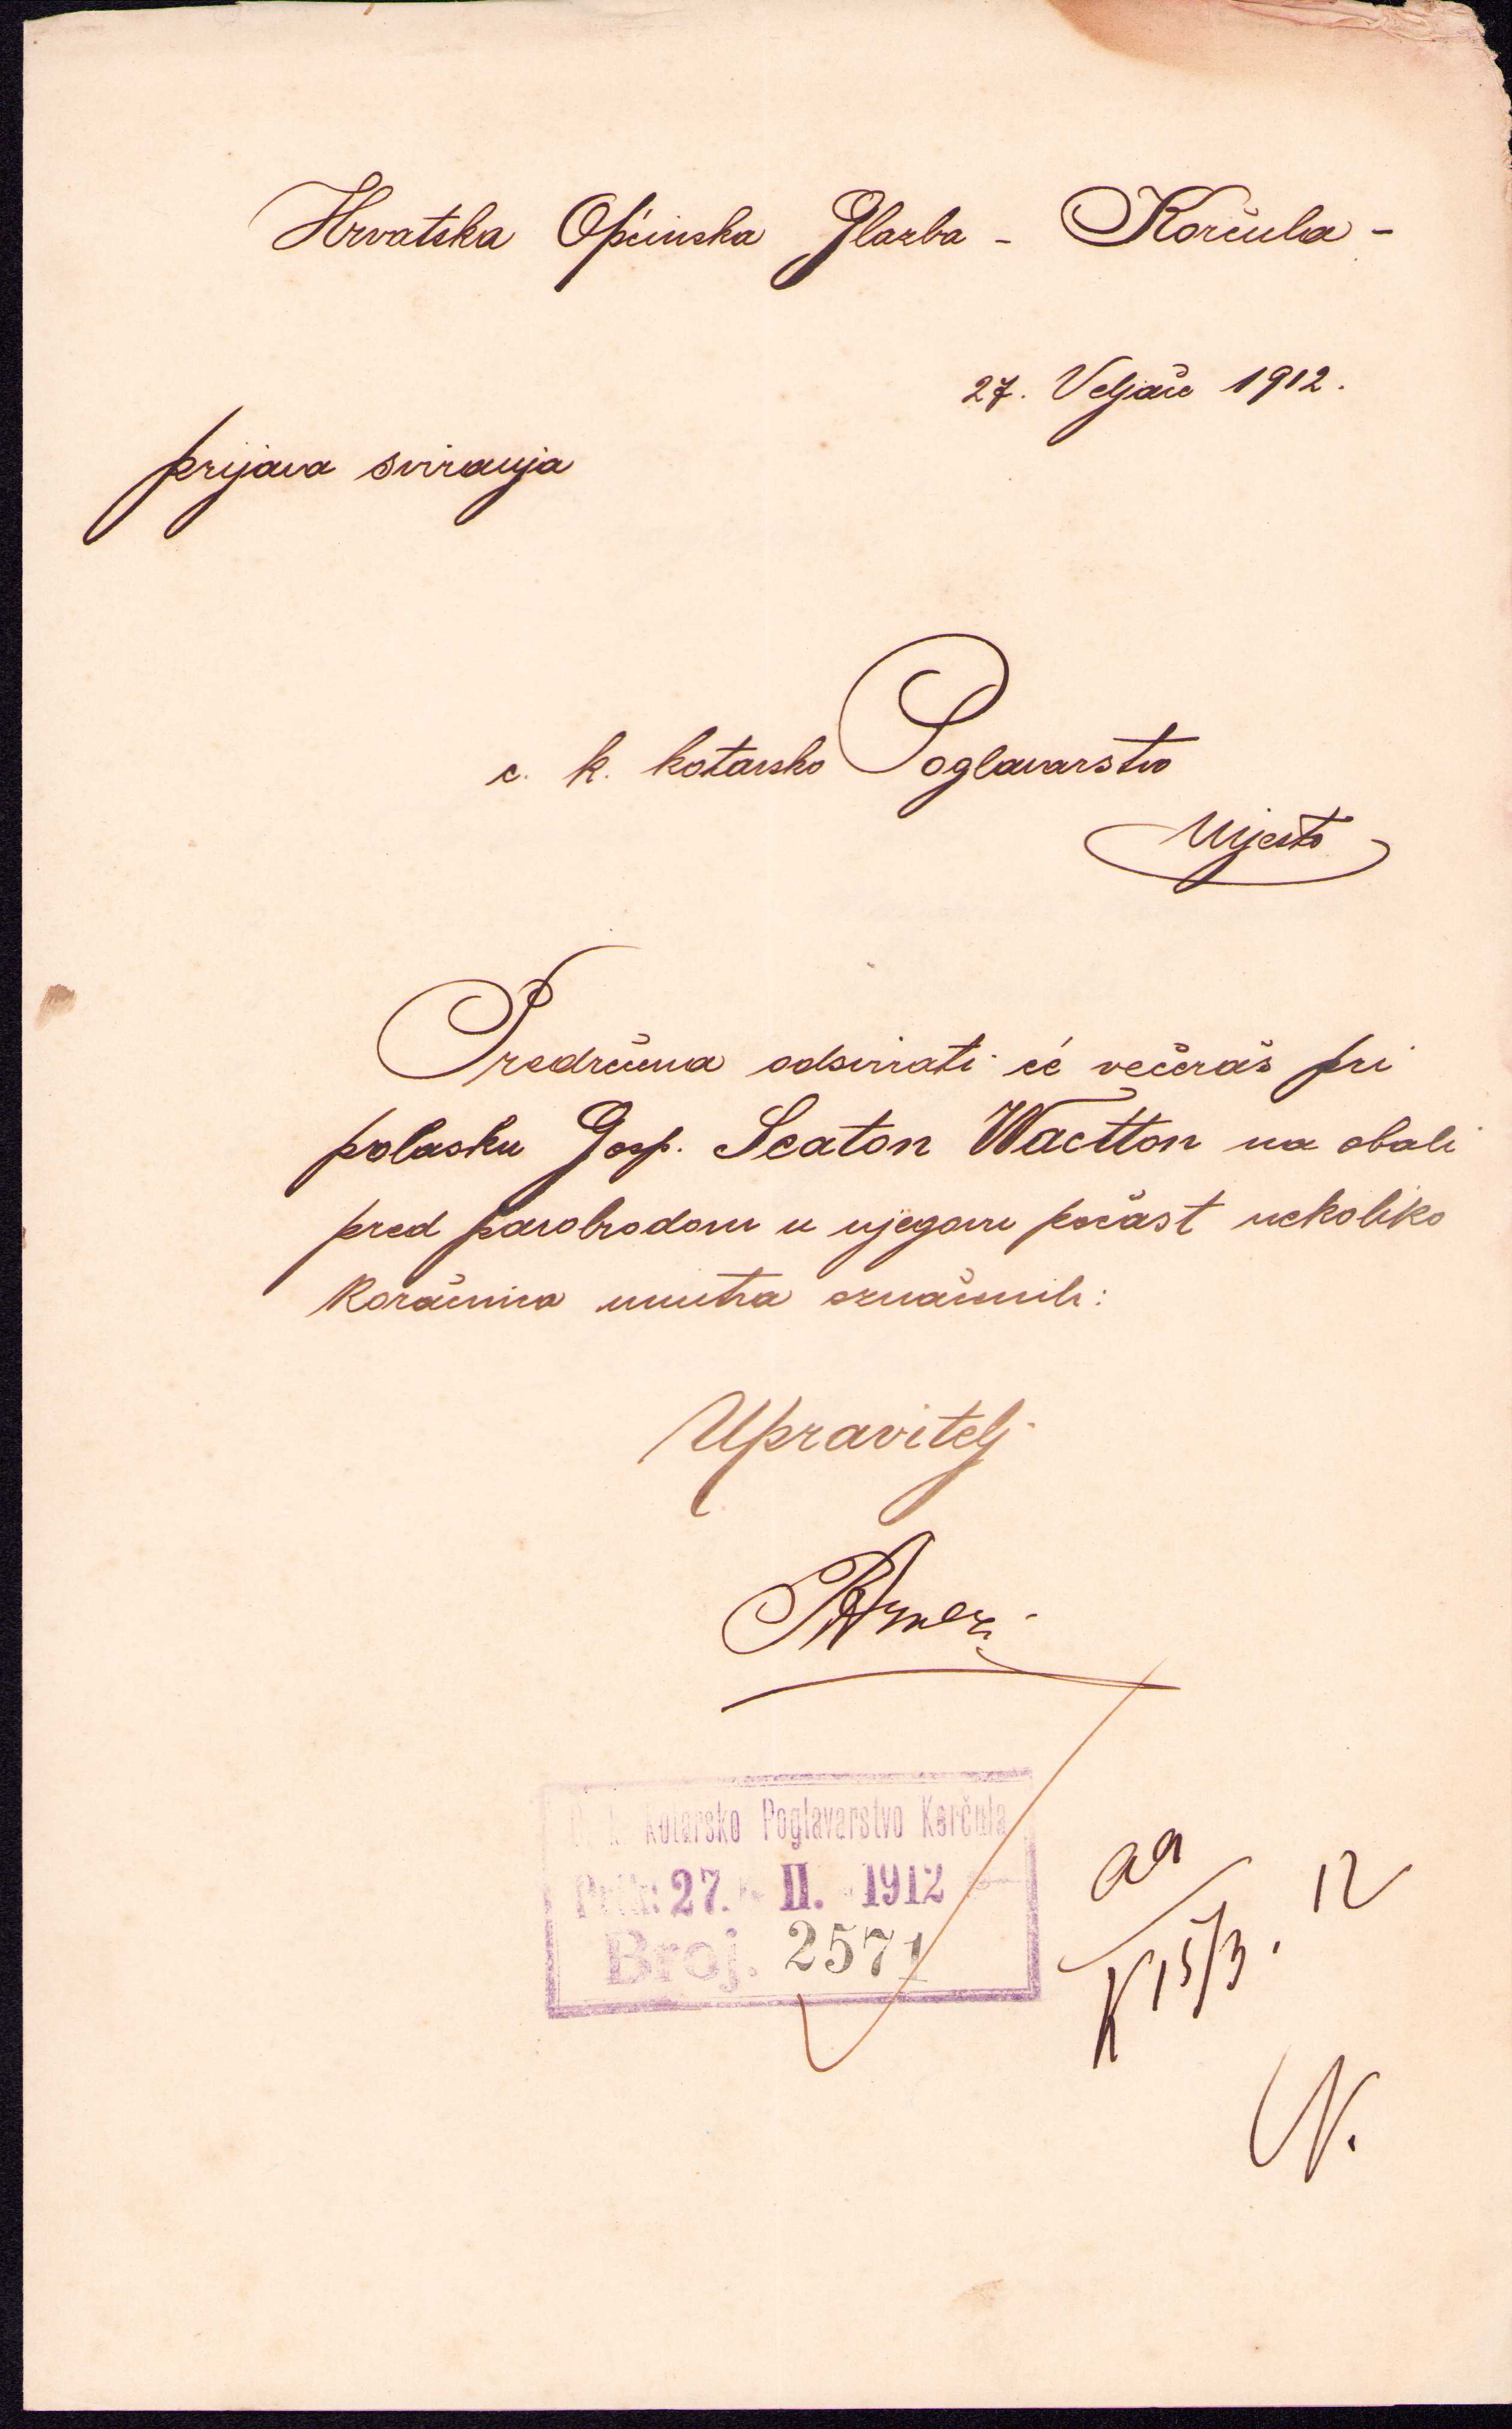 Hrvatska Općinska Glazba - Korčula -
27. Veljače 1912.
prijava sviranja
c. k. kotarsko Poglavarstvo
Mjesto
Predrečena odsvirati će večeraš pri
polasku Gosp. Seaton Wactton na obali
pred parobrodom u njegovu počast nekoliko
Koračnica unutra označenih:
Upravitelj
C. k. Kotarsko Poglavarstvo Korčula
Prik: 27. II. 1912
Broj. 2571
aa
K 15/3. 12
N.